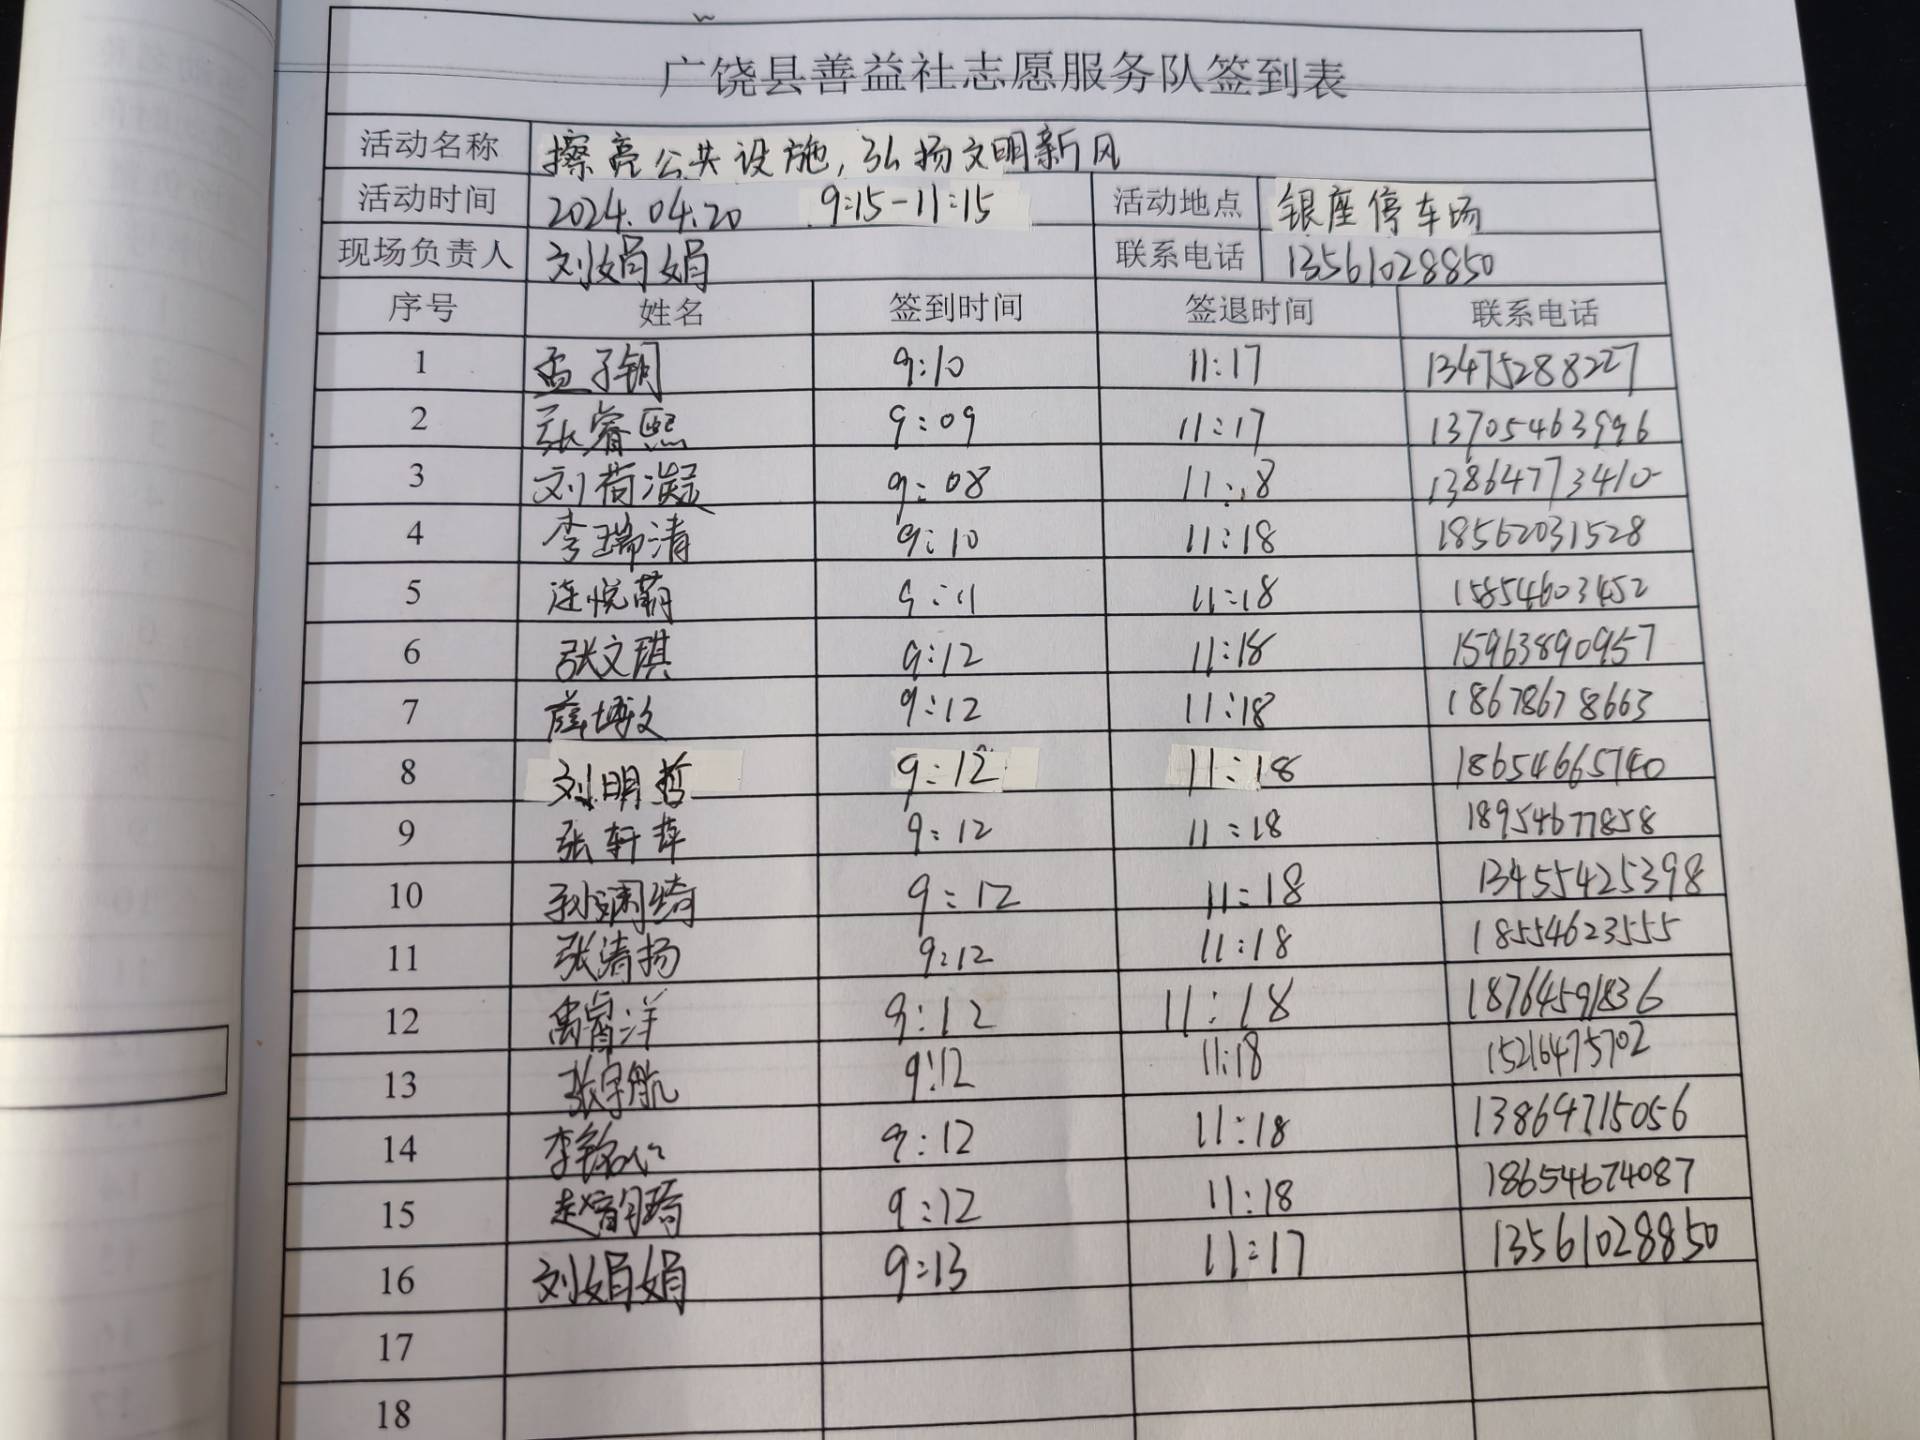 广饶县善益社志愿服务队签到表
活动名称 擦亮公共设施,弘扬文明新风
活动时间 2024.04.20 9:15-11:15 活动地点 银座停车场
现场负责人 刘娟娟 联系电话 13561028850
序号 姓名 签到时间 签退时间 联系电话
1 孟子钥 9:10 11:17 13475288227
2 张睿熙 9:09 11:17 13705463996
3 刘荷凝 9:08 11:18 13864773410
4 李瑞清 9:10 11:18 18562031528
5 连悦 9:11 11:18 15854603452
6 张文琪 9:12 11:18 15963890957
7 薛博文 9:12 11:18 18678678663
8 刘明哲 9:12 11:18 18654665740
9 张轩 9:12 11:18 18954677858
10 孙澜绮 9:12 11:18 13455425398
11 张清扬 9:12 11:18 18554623555
12 禹睿洋 9:12 11:18 18764591836
13 张宇航 9:12 11:18 15216475702
14 李铭心 9:12 11:18 13864715056
15 赵 琦 9:12 11:18 18654674087
16 刘娟娟 9:13 11:17 13561028850
17
18